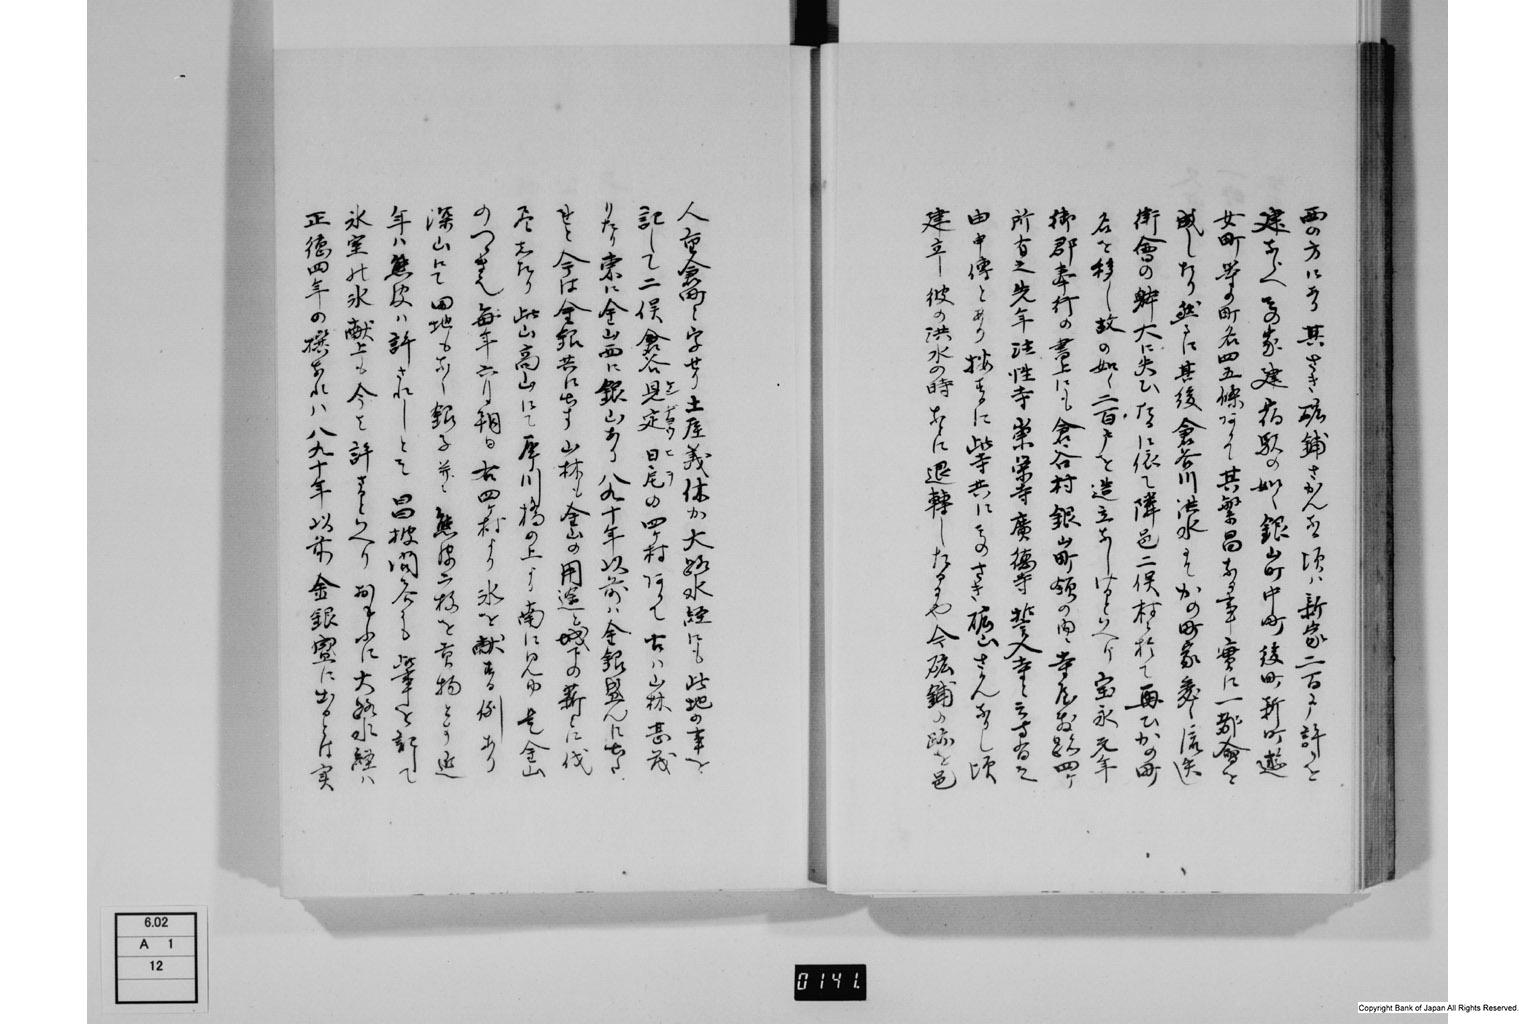 西の方にあり其さき砿鋪さかんな頃は新家二百戸許りを
建ならへ其家建宿駅の如く銀山町中町後町新町遊
女町等の町名四五條ありて其繁昌なる事実に一都會を
成しなり然るに其後倉谷川洪水にてかの町家悉く流失
街會の躰大に失ひたるに依て隣邑二俣村に於て再ひかの町
名を移し故の如く二百戸を造立なしけるといへり宝永元年
御郡奉行の書上にも倉谷村銀山町領の内寺屋敷跡四ケ
所有之先年法性寺榮栄寺廣徳寺誓入寺と云寺有之
由申傳とあり按するに此寺共に其のさき砿山さかんなりし頃
建立し彼の洪水の時共に退轉したるや今砿鋪の跡を邑
人重倉町と字せり土屋義休か大路水経にも此地の事を
記して二俣倉谷見定日尾の四ケ村ありて古は山林甚茂
りたり東に金山西に銀山あり八九十年以前は金銀盛んに出た
せと今は金銀共に出す山林も金山の用途と城下の薪とに伐
尽したり此山高山にて犀川橋の上より南に見ゆ是金山
のつゝきなり毎年六月朔日右四ケ村より氷を献する例あり
深山にて田地もなく銀子并に熊皮二枚を貢物とす近
年は熊皮は許されしとそ 昌披問答にも此事を記して
氷室の氷献上も今は許さるといへり おもふに大路水経は
正徳四年の撰なれは八九十年以前金銀盛に出るとは実
6.02
A 1
12
0141.
Copyright Bank of Japan All Rights Reserved.